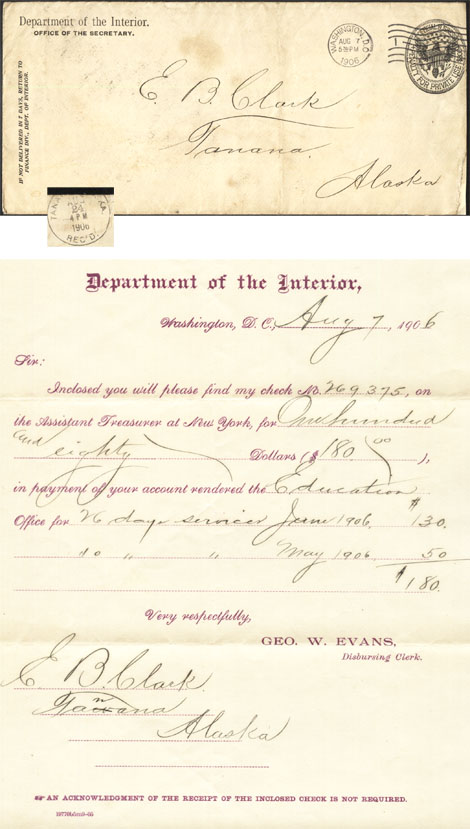 Department of the Interior.
OFFICE OF THE SECRETARY.
IF NOT DELIVERED IN 7 DAYS, RETURN TO
FINANCE DIV., DEPT. OF INTERIOR.
WASHINGTON, D.C.
AUG 7
1906
1
PENALTY FOR PRIVATE USE
E. B. Clark
Tanana.
Alaska
24
4 PM
1906
REC'D.
Department of the Interior,
Washington, D. C., Aug 7, 1906
Sir:
Inclosed you will please find my check No. 269375, on
the Assistant Treasurer at New York, for One hundred
and eighty Dollars ($180 00),
in payment of your account rendered the Education
Office for 26 days services June 1906. $130.
10 " " May 1906. 50
$180.
Very respectfully,
GEO. W. EVANS,
Disbursing Clerk.
E. B. Clark.
Tanana
Alaska
AN ACKNOWLEDGMENT OF THE RECEIPT OF THE INCLOSED CHECK IS NOT REQUIRED.